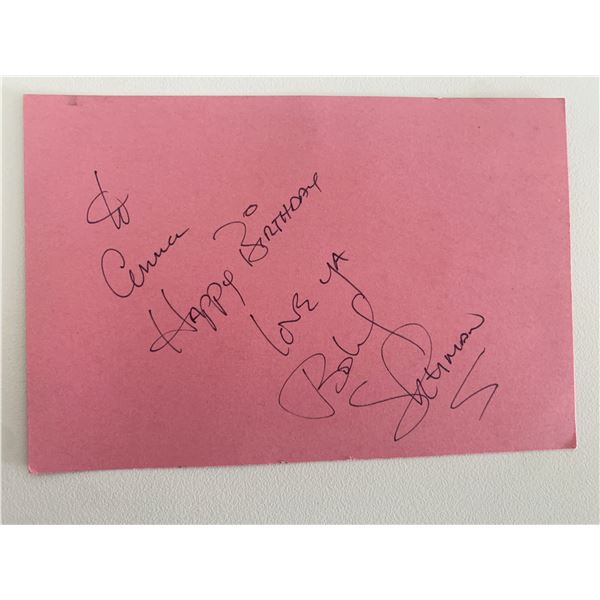 to
Anna
HAPPY BIRTHDAY
LOVE YA
Bobby
Sherman